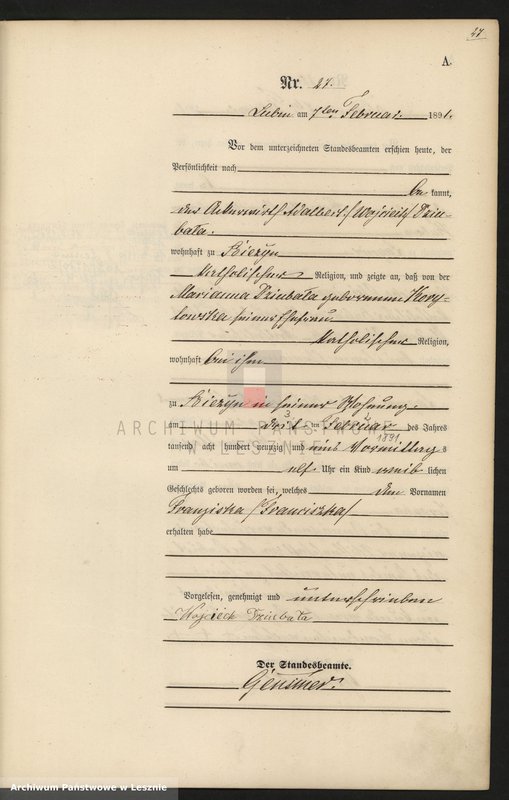 27
A.
Nr. 27.
Lubin am 7ten Februar 1891.
Vor dem unterzeichneten Standesbeamten erschien heute, der
Persönlichkeit nach
be kannt,
der Ackerwirth Adalbert /Wojciech/ Dziu-
bała.
wohnhaft zu
katholischer Religion, und zeigte an, daß von der
Marianna Dziubała geborenen
seiner Ehefrau
katholischer Religion,
wohnhaft bei ihm
zu in seiner Wohnung.
am drei 3 ten Februar des Jahres
1891
tausend acht hundert neunzig und eins Vormittag s
um elf Uhr ein Kind weib lichen
Geschlechts geboren worden sei, welches den Vornamen
Franziska /Franciszka/
erhalten habe
Vorgelesen, genehmigt und unterschrieben
Wojciech Dziubała
Der Standesbeamte.
ARCHIWUM PAŃSTWOWE
W LESZNIE
Archiwum Państwowe w Lesznie